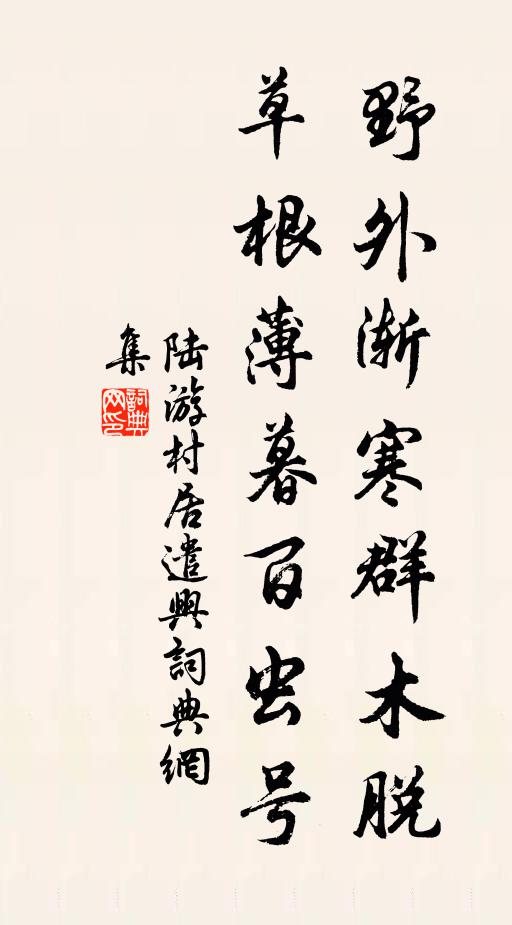 野外渐寒群木脱
草根薄暮百虫号
陆游村居遣興詞典網
集
詞典
网印